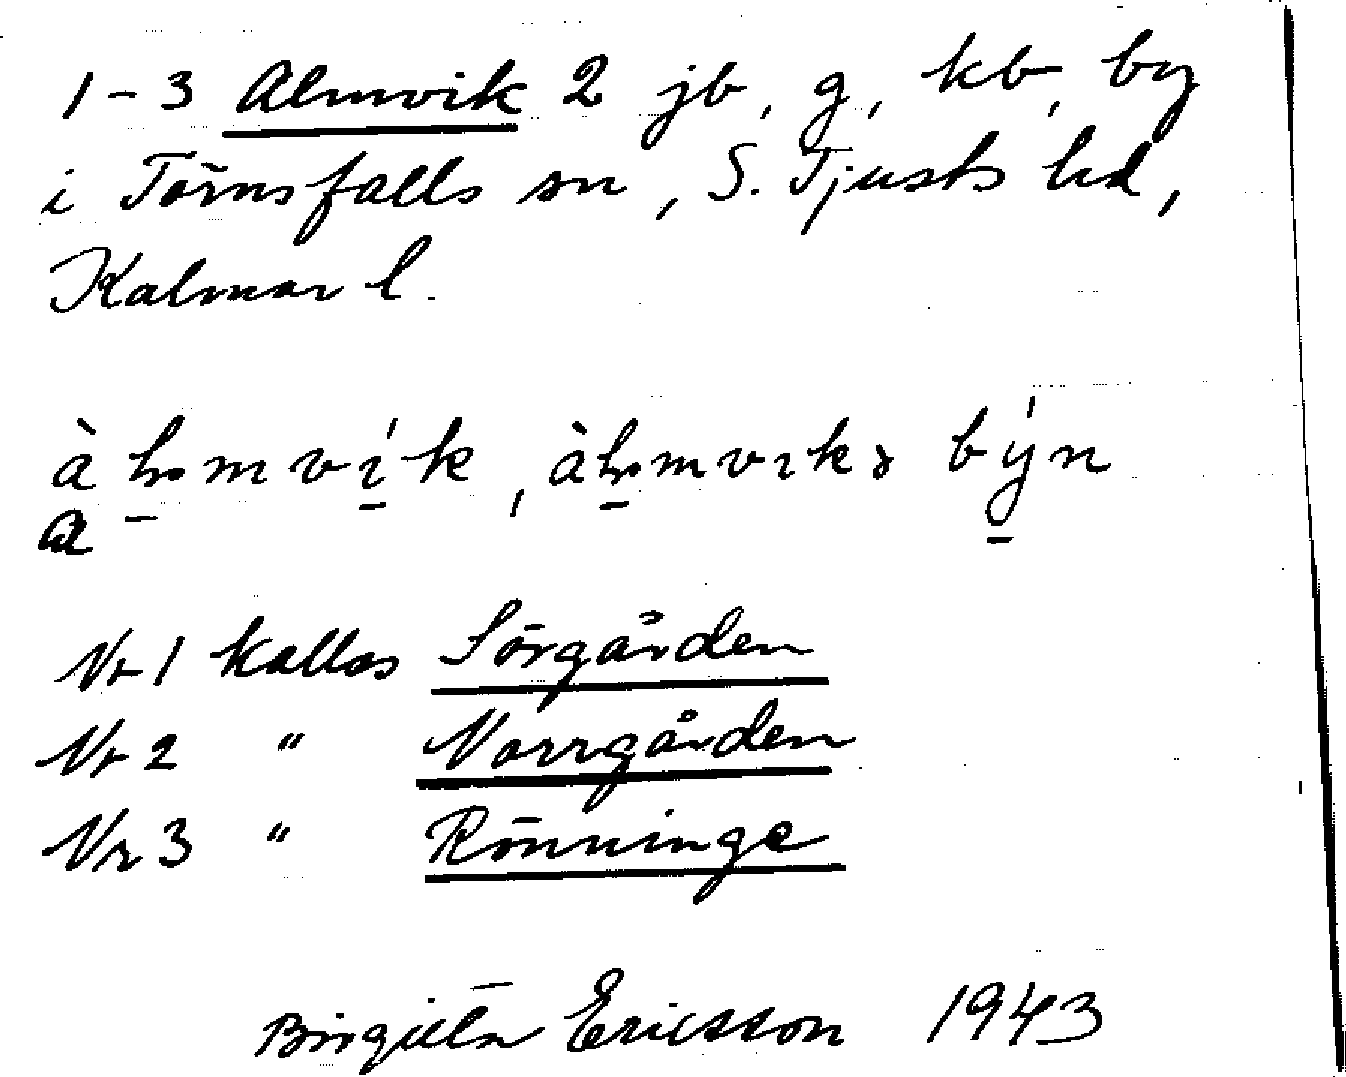 1-3 Almvik 2 jb, g, kb, by
i Törnsfalls sn, S. Tjusts hd,
Kalmar l.
býn
a
Nr 1 kallas Sörgården
Nr 2 " Norrgården
Nr 3 " Rönninge
Birgitta Ericsson 1943